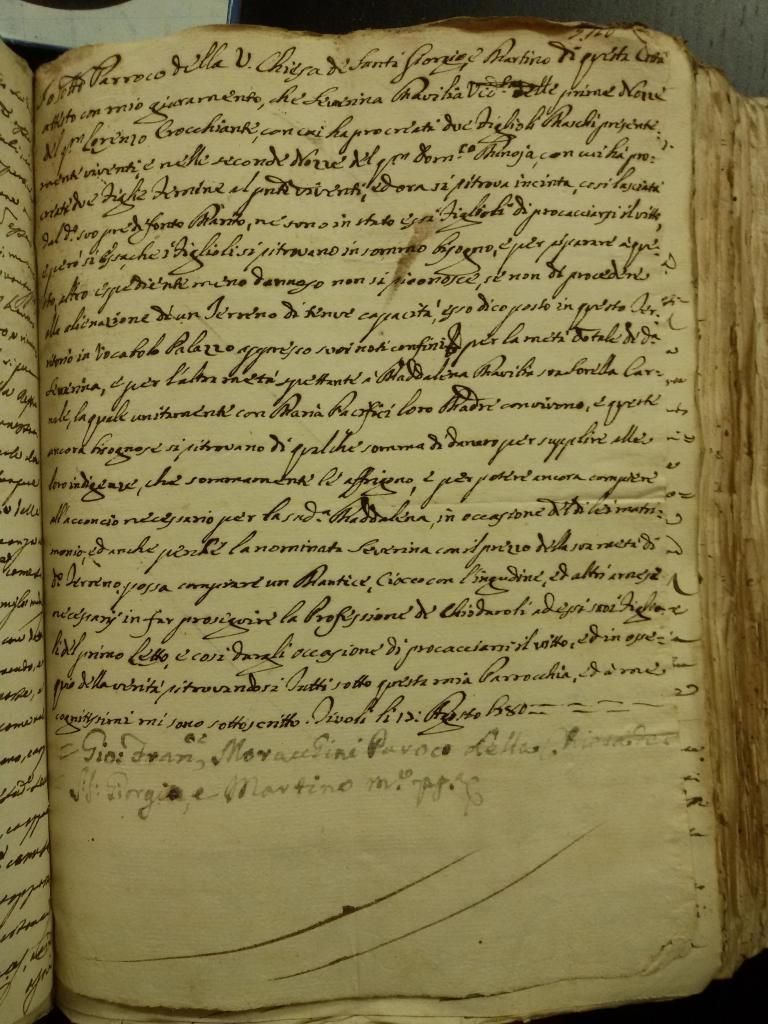 Io sotto Parroco della V. Chiesa de Santi Giorgio, e Martino di questa Città
attesto con mio giuramento, che Severina Ravilia Ved.a delle prime Nozze
del q.m Lorenzo Crocchiante, con cui ha procreati due Figlioli Maschi presente-
mente viventi, e nelle seconde Nozze del q.m Dom.co con cui hà pro-
create due Figlie Femine al pnte viventi, ed ora si ritrova incinta, così lasciata
dal d.o suo predefonto Marito, ne sono in stato essi Figlioli di procacciarsi il vitto,
e però si essa, che i Figlioli si ritrovano in sommo bisogno, e per riparare a que-
sto, altro espediente meno dannoso non si riconosce, se non di procedere
alla alienazione de un Terreno di tenue capacità, esso dico posto in questo Ter-
ritorio in Vocabolo Palazzo appresso suoi noti confini per la metà dotale di d.a
Severina, e per l'altra metà spettante à Maddalena Ravilia sua sorella Car-
nale, la quale unitamente con Maria Pacifici loro Madre convivono, e queste
ancora bisognose si ritrovano di qualche somma di danaro per supplire alle
loro indigenze, che sommamente le affrigono, e per potere ancora compiere
all'acconcio necessario per la sud.a Maddalena, in occasione di di lei matri-
monio, ed anche perchè la nominata Severina con il prezzo della sua metà di
d.o Terreno possa comprare un Mantice, Ciocco con l'ingudine, ed altri arnesi
necessarj in far proseguire la Professione de Chiodaroli ad essi suoi Figlio-
li del primo Letto, e così dargli occasione di procacciarsi il vitto, ed in osse-
quio della verità ritrovandosi Tutti sotto questa mia Parrocchia, ed à me
cognitissimi mi sono sottoscritto. Tivoli li Agosto 1780
Gio: Fran.co Paroco della Chiesa de
S.S: Giorgio, e Martino m.o pp.a